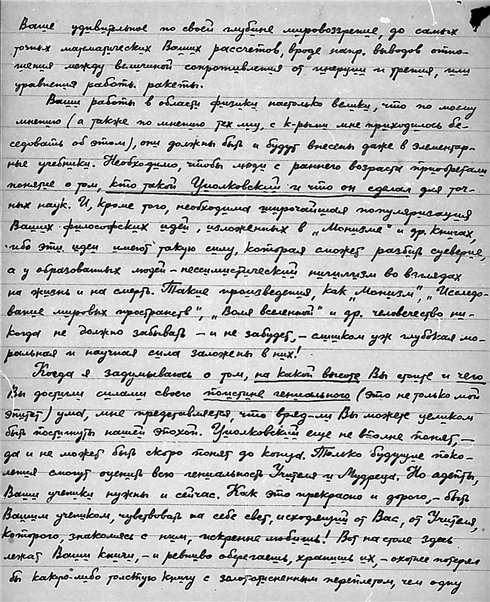 Ваше удивительное по своей глубине мировоззрение, до самых
точных математических Ваших рассчетов, вроде напр. выводов отно-
шения между величиной сопротивления от инерции и трения, или
уравнения работы ракеты.
Ваши работы в области физики настолько велики, что по моему
мнению (а также по мнению тех лиц, с к-рыми мне приходилось бе-
седовать об этом), они должны быть и будут внесены даже в элементар-
ные учебники. Необходимо, чтобы люди с раннего возраста приобретали
понятие о том, кто такой Циолковский и что он сделал для точ-
ных наук. И, кроме того, необходима широчайшая популяризация
Ваших философских идей, изложенных в „Монизме" и др. книгах,
ибо эти идеи имеют такую силу, которая сможет разбить суеверие,
а у образованных людей – пессимистический нигилизм во взглядах
на жизнь и на смерть. Такие произведения, как „Монизм", „Исследо-
вание мировых пространств", „Воля вселенной" и др. человечество ни-
когда не должно забывать – и не забудет, – слишком уж глубокая мо-
ральная и научная сила заложены в них!
Когда я задумываюсь о том, на какой высоте Вы стоите и чего
Вы достигли силами своего поистине гениального (это не только мой
эпитет) ума, мне представляется что вряд-ли Вы можете целиком
быть постигнуты нашей эпохой. Циолковский еще не вполне понят, –
да и не может быть скоро понят до конца. Только будущие поко-
ления смогут оценить всю гениальность Учителя и Мудреца. Но адепты,
Ваши ученики нужны и сейчас. Как это прекрасно и дорого, – быть
Вашим учеником, чувствовать на себе свет, исходящий от Вас, от Учителя,
которого, знакомясь с ним, искренне любишь! Вот на столе здесь
лежат Ваши книги, – и ревниво оберегаешь, хранишь их, – охотнее потерял
бы какую-либо толстую книгу с золототисненным переплетом, чем одну